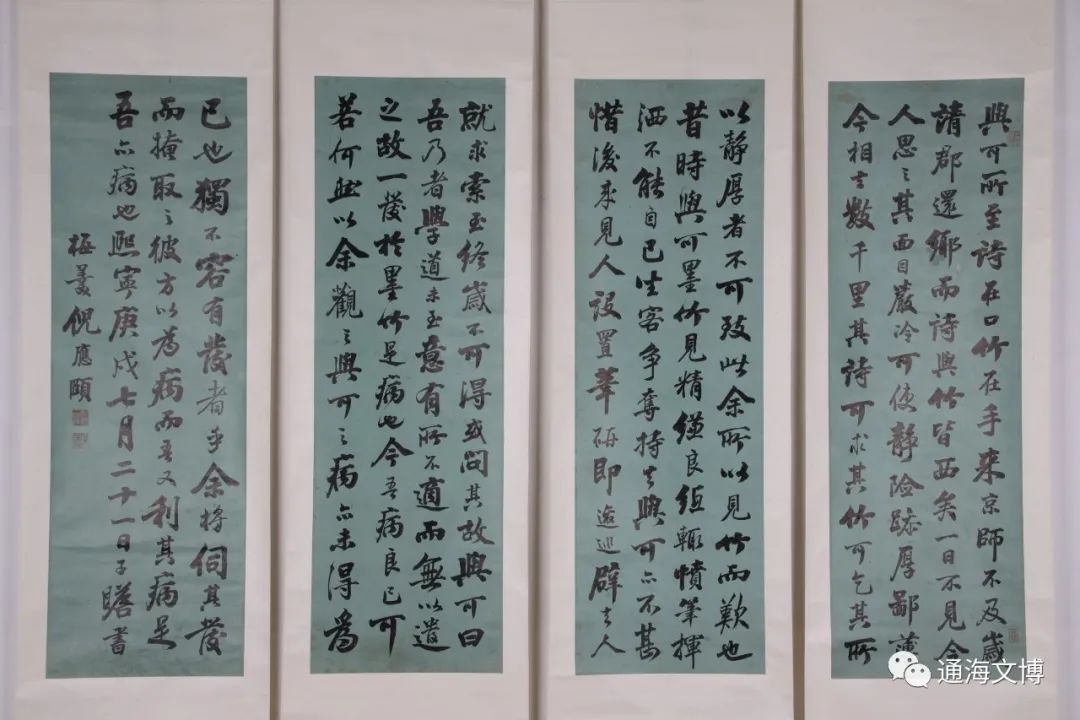 與可所至詩在口竹在手來京師不及歲
請郡還鄉而詩與竹皆西矣一日不見令
人思之其面目嚴冷可使靜險躁厚鄙薄
今相去數千里其詩可求其竹可乞其所
以靜厚者不可致此余所以見竹而歎也
昔時與可墨竹見精縑良紙輒憤筆揮
洒不能自已坐客爭奪持去與可亦不甚
惜後來見人設置筆硯即逡巡辟去人
就求索至終歲不可得或問其故與可曰
吾乃者學道未至意有所不適而無以遣
之故一發於墨竹是病也今吾病良已可
若何然以余觀之與可之病亦未得為
已也獨不容有發者乎余將伺其發
而掩取之彼方以為病而吾又利其病是
吾亦病也熙寧庚戌七月二十一日子瞻書
梅羹倪應頤
通海文博